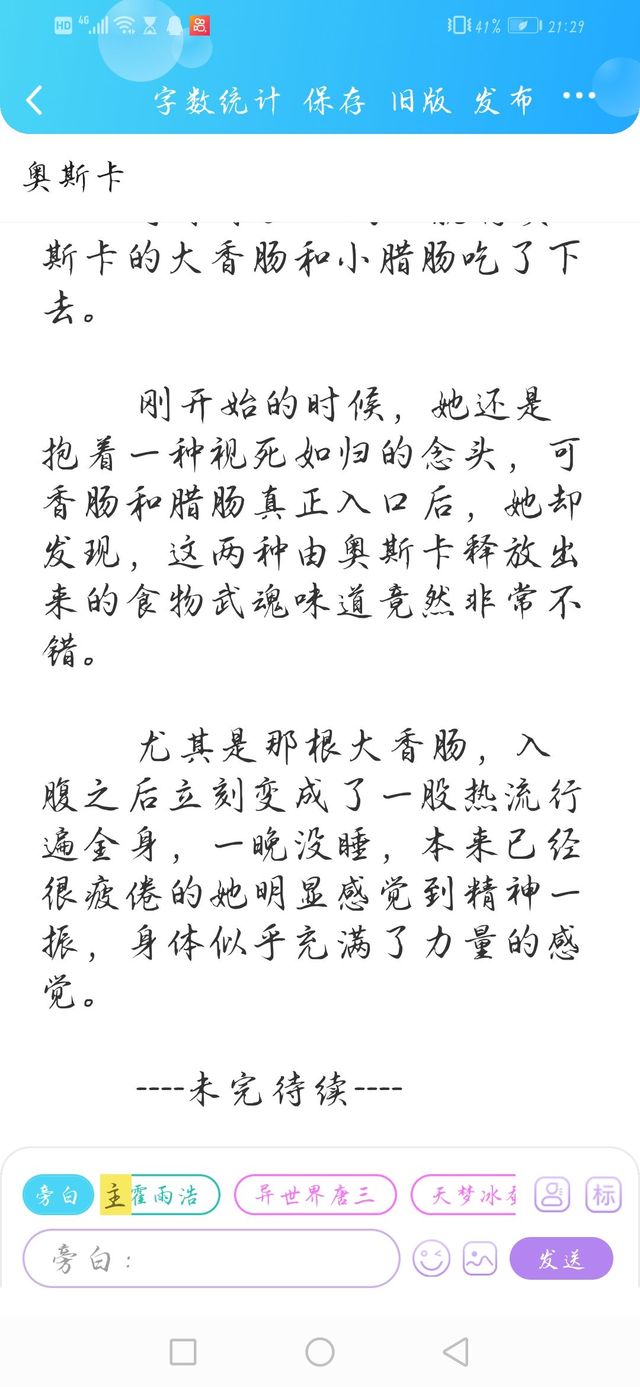 HD 4G 41% 21:29
字数统计 保存 旧版 发布 ···
奥斯卡
斯卡的大香肠和小腊肠吃了下
去。
刚开始的时候，她还是
抱着一种视死如归的念头，可
香肠和腊肠真正入口后，她却
发现，这两种由奥斯卡释放出
来的食物武魂味道竟然非常不
错。
尤其是那根大香肠，入
腹之后立刻变成了一股热流行
遍全身，一晚没睡，本来已经
很疲倦的她明显感觉到精神一
振，身体似乎充满了力量的感
觉。
----未完待续----
旁白 主 霍雨浩 异世界唐三 天梦冰 标
旁白：
发送